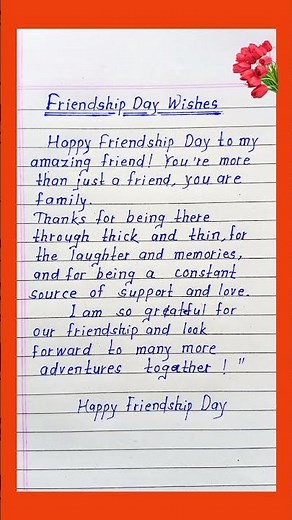 Friendship Day Wishes
Happy Friendship Day to my
amazing friend! You're more
than just a friend, you are
family.
Thanks for being there
through thick and thin, for
the laughter and memories,
and for being a constant
source of support and love.
I am so grateful for
our friendship and look
forward to many more
adventures together ! "
Happy Friendship Day